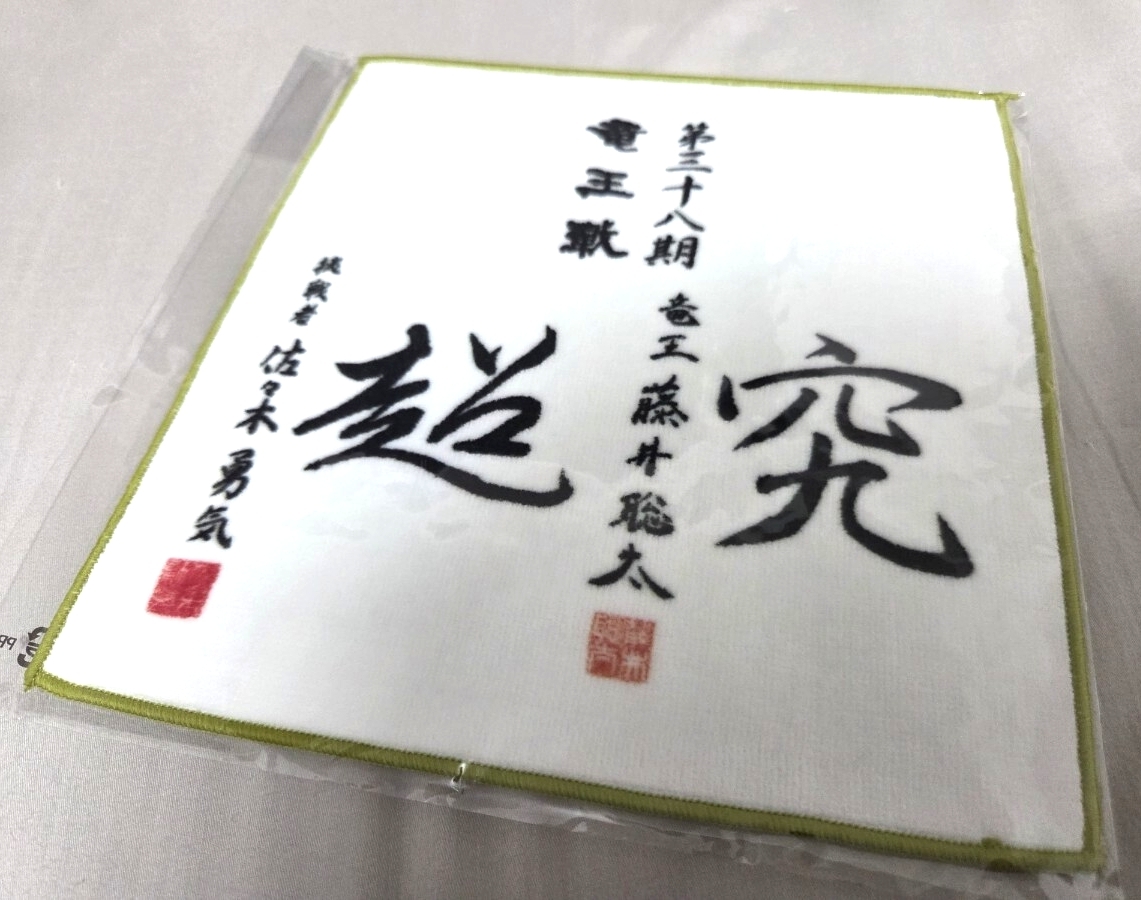 第三十八期
竜王戦
究
竜王 藤井聡太
超
挑戦者 佐々木勇気